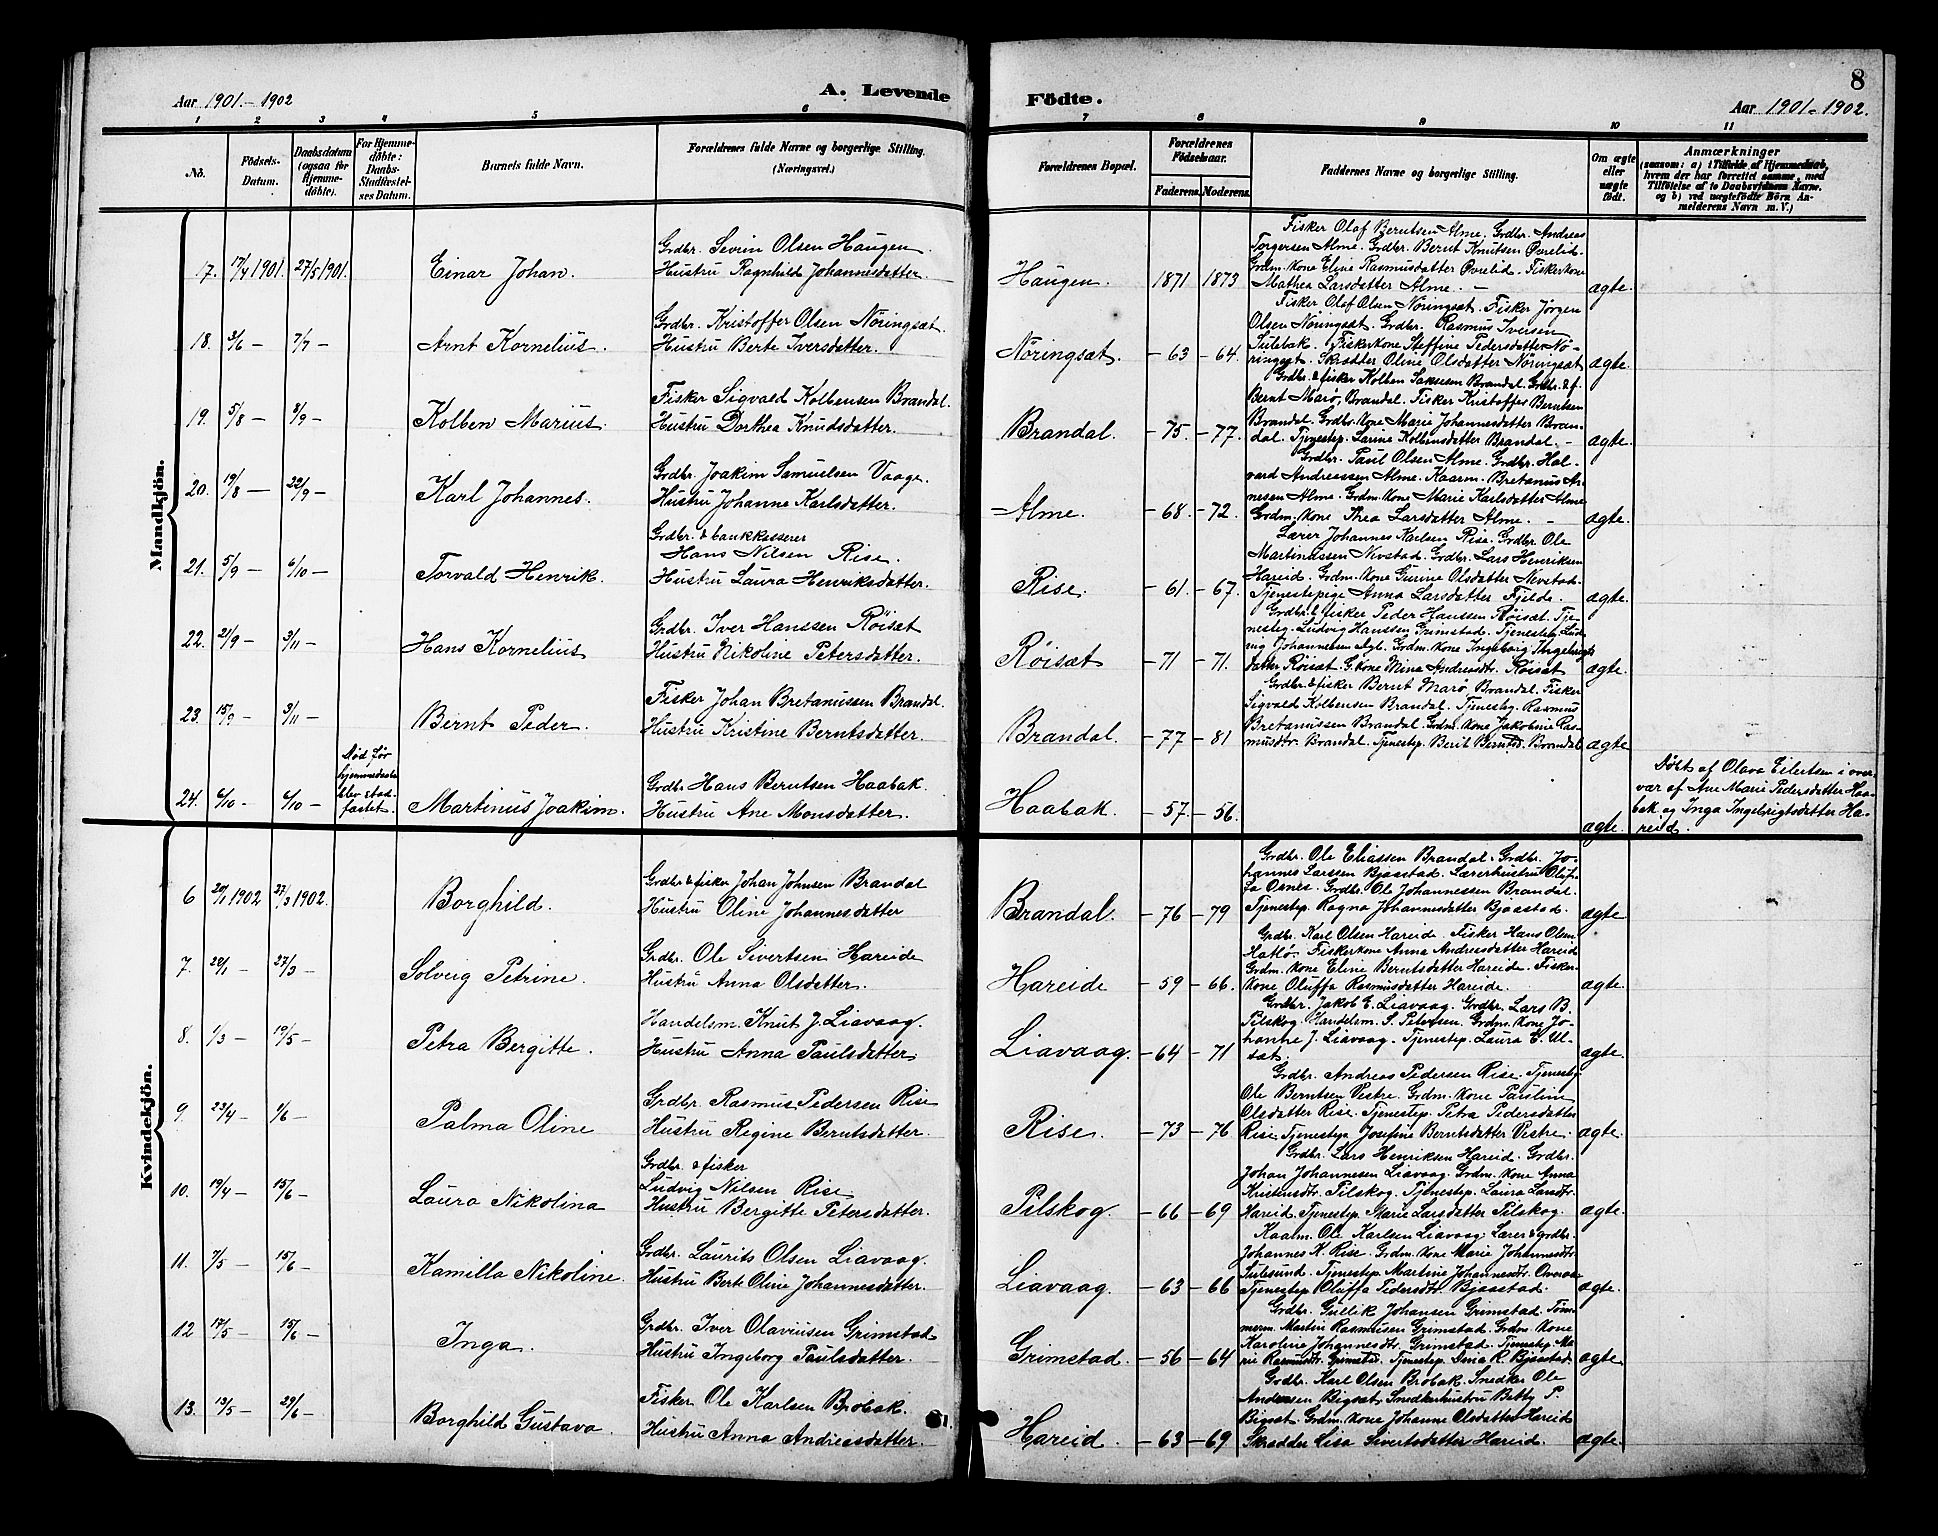 Aar 1901.-1902
A. Levende
Födte.
8
Aar 1901-1902.
1 2 3 4 5 6 7 8 9 10 11
No.
Födsels-
Datum.
Daabsdatum
(ogsaa for
Hjemme-
döbte).
For Hjemme-
döbte:
Daabs-
Stadfæstel-
ses Datum.
Barnets fulde Navn.
Forældrenes fulde Navne og borgerlige Stilling.
(Næringsvei.)
Forældrenes Bopæl.
Forældrenes
Födselsaar.
Faderens. Moderens.
Faddernes Navne og borgerlige Stilling.
Om ægte
eller
uægte
født.
Anmærkninger
(saasom: a) i Tilfælde af Hjemmedaab,
hvem der har forrettet samme, med
Tilföielse af to Daabsvidners Navne.
og b) ved uægtefödte Börn An-
melderens Navn m. V.)
Mandkjön.
17. 17/4 1901. 27/5 1901. Einar Johan.
Grdbr. Sevrin Olsen Haugen.
Hustru Ragnhild Johannesdatter.
Haugen. 1871 1873
Fisker Olaf Berntsen Alme. Grdbr. Andreas
Torgersen Alme. Grdbr. Bernt Knutsen Øvrelid.
Grdm. Kone Eline Rasmusdatter Øvrelid. Fiskerkone
Mathea Larsdatter Alme. -
ægte.
18. 3/6 - 7/7 - Arnt Kornelius.
Grdbr. Kristoffer Olsen Nöringsæt
Hustru Berte Iversdatter.
Nöringsæt. - 63 - 64.
Fisker Olaf Olsen Nöringsæt. Fisker Jörgen
Olsen Nöringsæt. Grdbr. Rasmus Iversen
Sulebak. Fiskerkone Steffine Pedersdatter Nö-
ringsæt. Skrædder Oline Olsdatter Nöringsæt
ægte.
19. 5/8 - 8/9 - Kolben Marius.
Fisker Sigvald Kolbensen Brandal.
Hustru Dorthea Knudsdatter.
Brandal. - 75. - 77.
Grdbr. & fisker Kolben Saksesen Brandal. Grdbr. & f.
Bernt Marö, Brandal. Fisker Kristoffer Berntsen
Brandal. Grdbr. Kone Marie Johannesdatter Bran-
dal. Tjenestep. Larine Kolbensdatter Brandal. -
ægte.
20. 19/8 - 22/9 - Karl Johannes.
Grdbr. Joakim Samuelsen Vaage.
Hustru Johanne Karlsdatter.
Alme. - 68. - 72.
Grdbr. Paul Olsen Alme. Grdbr. Hal-
vard Andreassen Alme. Kaarm. Bretanus Ar-
nesen Alme. Grdm. Kone Marie Karlsdatter Alme
Grdm. Kone Thea Larsdatter Alme. -
ægte.
21. 5/9 - 6/10 - Torvald Henrik.
Grdbr. & bankkasserer
Hans Nilsen Rise.
Hustru Laura Henriksdatter.
Rise. - 61. - 67.
Lærer Johannes Karlsen Rise. Grdbr. Ole
Martinussen Nevstad. Grdbr. Lars Henriksen
Hareid. Grdm. Kone Gurine Olsdatter Nevstad.
Tjenestepige Anna Larsdatter Fjelde.
ægte.
22. 21/9 - 3/11 - Hans Kornelius
Grdbr. Iver Hanssen Röisæt
Hustru Nikoline Petersdatter.
Röisæt - 71 - 71.
Grdbr. & fisker Peder Hanssen Röisæt. Tje-
nesteg. Ludvig Hanssen Grimstad. Tjenestep. Lud-
vig Johannesen Igl. Grdm. Kone Ingeborg Ingebrigts
datter Röisæt. G. Kone Mina Andreasdtr. Röisæt
ægte.
23. 15/9 - 3/11 - Bernt Peder.
Fisker Johan Bretanussen Brandal.
Hustru Kristine Berntsdatter.
Brandal. - 77 - 81
Grdbr. & fisker Bernt Marö Brandal. Fisker
Sigvald Kolbensen Brandal. Tjenesteg. Rasmus
Bretanussen Brandal. Grdm. Kone Jakobine Ras-
musdtr. Brandal. Tjenestep. Berit Berntsd. Brandal
ægte.
24. 6/10 - 6/10 -
Död før
hjemmedaaben
blev stad-
fæstet.
Martinus Joakim.
Grdbr. Hans Berntsen Haabak.
Hustru Ane Monsdatter.
Haabak. - 57. - 56.
ægte.
Döbt af Olava Eilertsen i over-
vær af Ane Marie Pedersdatter Haa-
bak og Inga Ingebrigtsdatter Ha-
reid.
Kvindekjön.
6 20/1 1902 27/3 1902. Borghild.
Grdbr. & fisker Johan Johnsen Brandal
Hustru Oline Johannesdatter
Brandal. - 76 - 79
Grdbr. Ole Eliassen Brandal. Grdbr. Jo-
hannes Larssen Bjaastad. Lærerhustru Olif-
fa Osnes. Grdbr. Ole Johannessen Brandal.
Tjenestep. Ragna Johannesdatter Bjaastad.
ægte
7. 20/1 - 27/3 - Solveig Petrine.
Grdbr. Ole Sivertsen Hareide
Hustru Anna Olsdatter.
Hareide - 59 - 66.
Grdbr. Karl Olsen Hareide. Fisker Hans Olsen
Hatlø. Fiskerkone Anna Andreasdatter Hareid
Grdm. Kone Eline Berntsdatter Hareide. Fisker-
kone Oluffa Rasmusdatter Hareide.
ægte.
8. 1/3 - 19/5 - Petra Bergitte.
Handelsm. Knut J. Liavaag.
Hustru Anna Paulsdatter
Liavaag. - 64 - 71
Grdbr. Jakob E. Liavaag. Grdbr. Lars B.
Pilskog. Handelsm. S. Petersen. Grdm. Kone Jo-
hanne J. Liavaag. Tjenestep. Laura E. Ul-
sæt.
ægte.
9. 23/4 - 1/6 - Palma Oline
Grdbr. Rasmus Pedersen Rise
Hustru Regine Berntsdatter.
Rise. - 73 - 76
Grdbr. Andreas Pedersen Rise. Tjenesteg.
Ole Berntsen Vestre. Grdm. Kone Pauline
Olsdatter Rise. Tjenestep. Petra Pedersdatter
Rise. Tjenestep. Josefine Berntsdatter Vestre.
ægte.
10. 19/4 - 15/6 - Laura Nikolina
Grdbr. & fisker
Ludvig Nilsen Rise
Hustru Bergitte Petersdatter.
Pilskog. - 66 - 69
Grdbr. Lars Henriksen Hareid. Grdbr.
Johan Johannesen Liavaag. Grdm. Kone Anna
Kristensdtr. Pilskog. Tjenestep. Laura Larsdtr.
Hareid. Tjenestep. Marie Larsdatter Pilskog.
ægte.
11. 7/5 - 15/6 - Kamilla Nikoline.
Grdbr. Laurits Olsen Liavaag.
Hustru Berte Oline Johannesdatter.
Liavaag. - 63 - 66
Kaarm. Ole Karlsen Liavaag. Lærer & Grdbr.
Johannes K. Rise. Grdm. Kone Marie Johannesdtr.
Sulesund. Tjenestep. Martine Johannesdtr. Overaa
Tjenestep. Oluffa Pedersdtr. Bjaastad.
ægte.
12 17/5 - 15/6 - Inga.
Grdbr. Iver Olaviusen Grimstad
Hustru Ingeborg Paulsdatter.
Grimstad. - 56 - 64
Grdbr. Gullik Johansen Grimstad. Töm-
merm. Martin Rasmusen Grimstad. Grdm. Kone
Karoline Johannesdtr. Grimstad. Tjenestep. Ma-
rie Rasmusdtr. Grimstad. Tjenestep. Lina R. Bjaastad.
ægte.
13. 13/5 - 29/6 - Borghild Gustava.
Fisker Ole Karlsen Bröbak.
Hustru Anna Andreasdatter.
Hareid. - 63 - 69
Grdbr. Karl Olsen Bröbak. Snedker Ole
Andersen Bigsæt. Snedkerhustru Betty P.
Bigsæt. Grdm. Kone Johanne Olsdatter Hareid
Skrædder Lisa Sivertsdatter Hareid.
ægte.